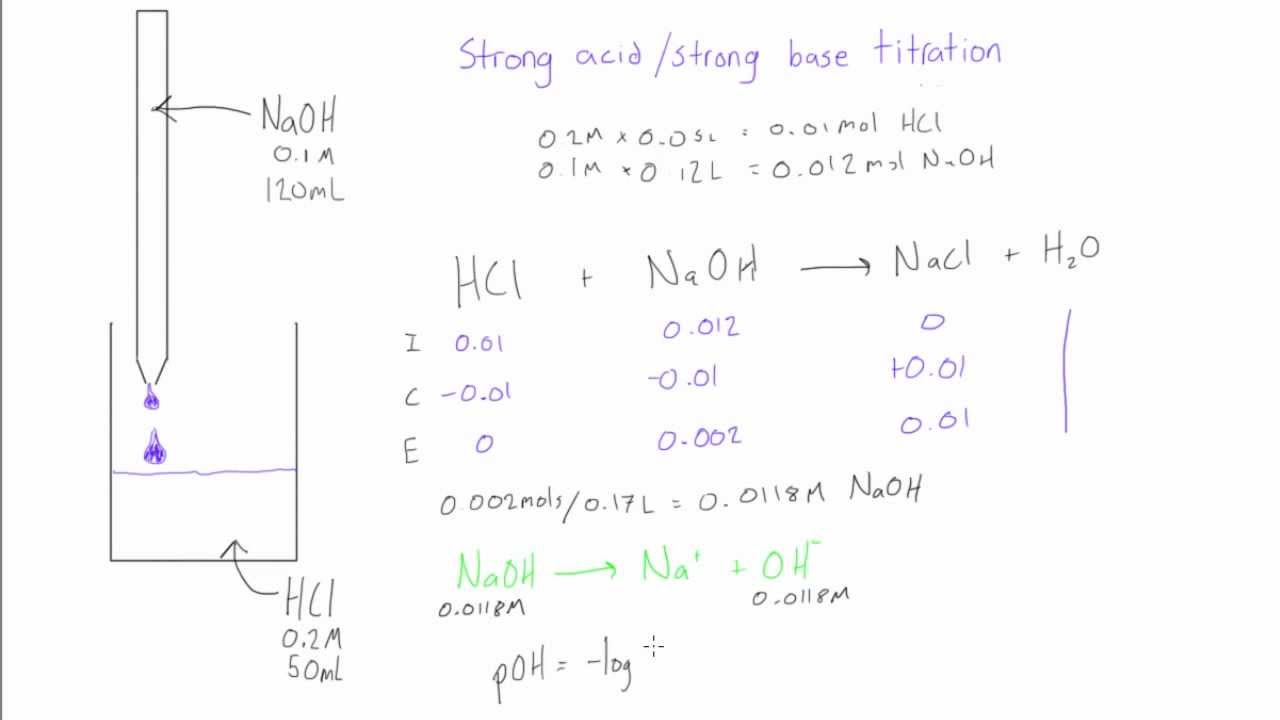 Strong acid/strong base titration
NaOH
0.1M
120mL
0.2M × 0.05L = 0.01mol HCl
0.1M × 0.12L = 0.012mol NaOH
HCl + NaOH → NaCl + H₂O
I 0.01 0.012 0
C -0.01 -0.01 +0.01
E 0 0.002 0.01
0.002mols/0.17L = 0.0118M NaOH
NaOH → Na⁺ + OH⁻
0.0118M 0.0118M
pOH = -log
HCl
0.2M
50mL